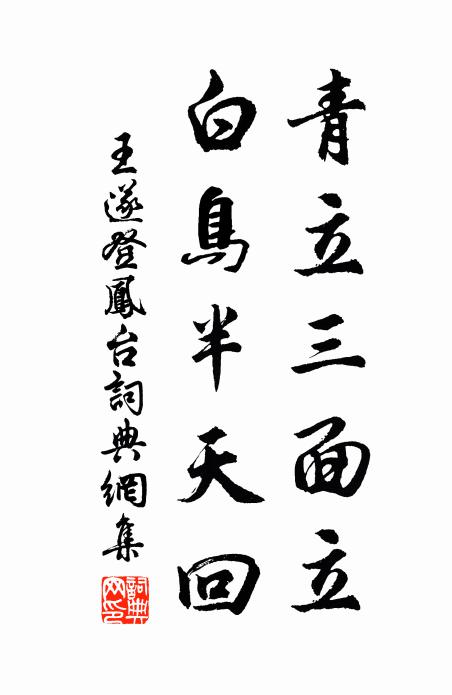 青立三面立
白鳥半天回
王遂登鳳台詞典網集
詞典網印